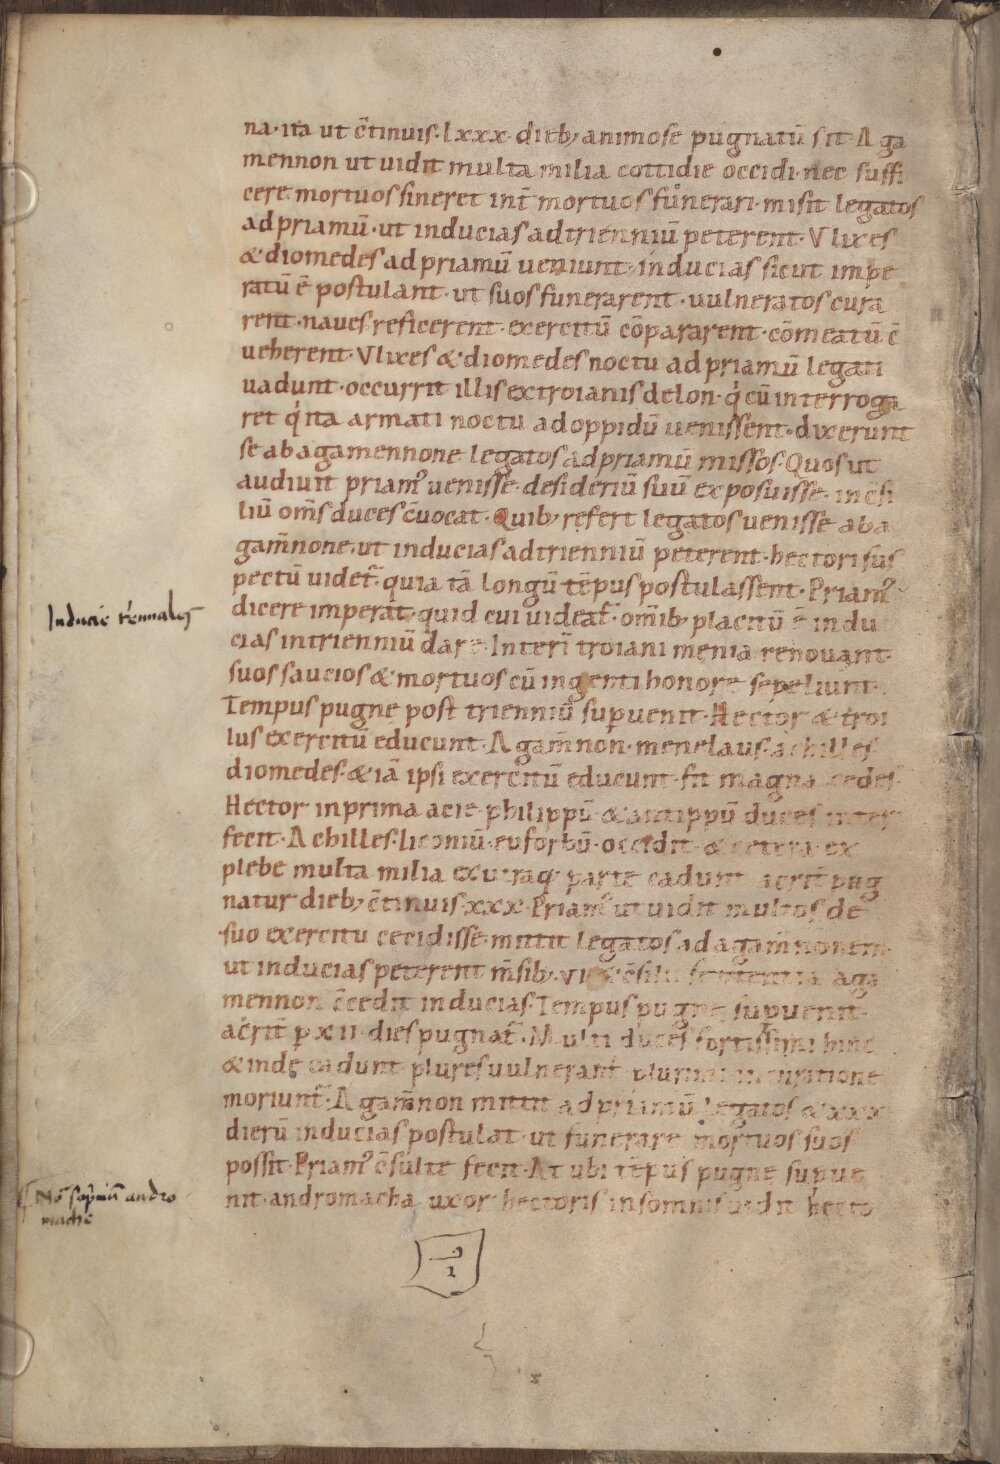 na· ita ut c̄tinuis· lxxx· dieb; animose pugnatū sit· Aga
mennon ut uidit multa milia cottidie occidi· nec suffi
cere mortuos sineret int̄ mortuos funerari· misit legatos
ad priamū· ut inducias ad trienniū peterent· Vlixes
& diomedes ad priamū ueniunt· inducias sicut impe
ratū ē postulant· ut suos funerarent· uulneratos cura
rent· naues reficerent· exercitū cōpararent· cōmeatū c̄
ueherent· Vlixes & diomedes noctu ad priamū legati
uadunt· occurrit illis ex troianis delon· q̇ cū interroga
ret q̇ ita armati noctu ad oppidū uenissent· dixerunt
se ab agamennone legatos ad priamū missos· Quos ut
audiuit priam᾽ uenisse· desideriū suū exposuisse· in c̄si
liū om̄s duces c̄uocat· Quib; refert legatos uenisse ab a
gam̄none· ut inducias ad trienniū peterent· hectori sus
pectū uidet̄· quia tā longū tēpus postulassent· Priam᾽
dicere imperat· quid cui uideat̄· om̄ib; placitū ē indu
cias in trienniū dare· Interī troiani menia renouant·
suos saucios & mortuos cū ingenti honore sepeliunt·
Tempus pugne post trienniū supuenit· Hector & troi
lus exercitū educunt· Agam̄non· menelaus· achilles
diomedes· & iā ipsi exercitū educunt· fit magna cedes·
Hector in prima acie· philippū & antippū duces inter
fecit· Achilles· liconiū· euforbū· occidit· & cetera ex
plebe multa milia ex utraq; parte cadunt acrit̄ pug
natur dieb; c̄tinuis· xxx· Priam᾽ ut uidit multos de
suo exercitu cecidisse· mittit legatos ad agam̄nonem·
ut inducias peterent m̄sib; vi & c̄silii sententia aga
mennon c̄cedit inducias· Tempus pugne supuenit·
acrit̄ p xii· dies pugnat̄· Multi duces fortissimi hinc
& inde cadunt plures uulnerant̄ plurimi in curatione
moriunt̄· Agam̄non mittit ad priamū legatos & xxx
dierū inducias postulat· ut funerare mortuos suos
possit· Priam᾽ c̄sulte fecit· At ubi tēpus pugne supue
nit· andromacha uxor hectoris in somnis uidit hecto
Inducie triennales
No somniū andro
mache